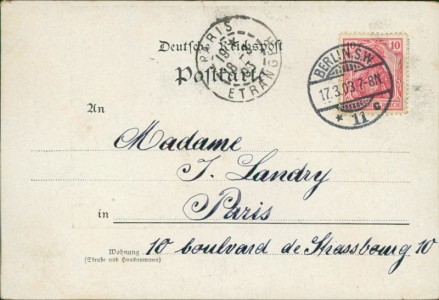 Deutsche Reichspost
Postkarte
PARIS
ETRANGER
10
BERLIN.S.W.
17.3.03.7-8N.
* 11 c
An
Madame
J. Landry
in
Paris
Wohnung
(Straße und Hausnummer)
10 boulevard de Strassbourg 10